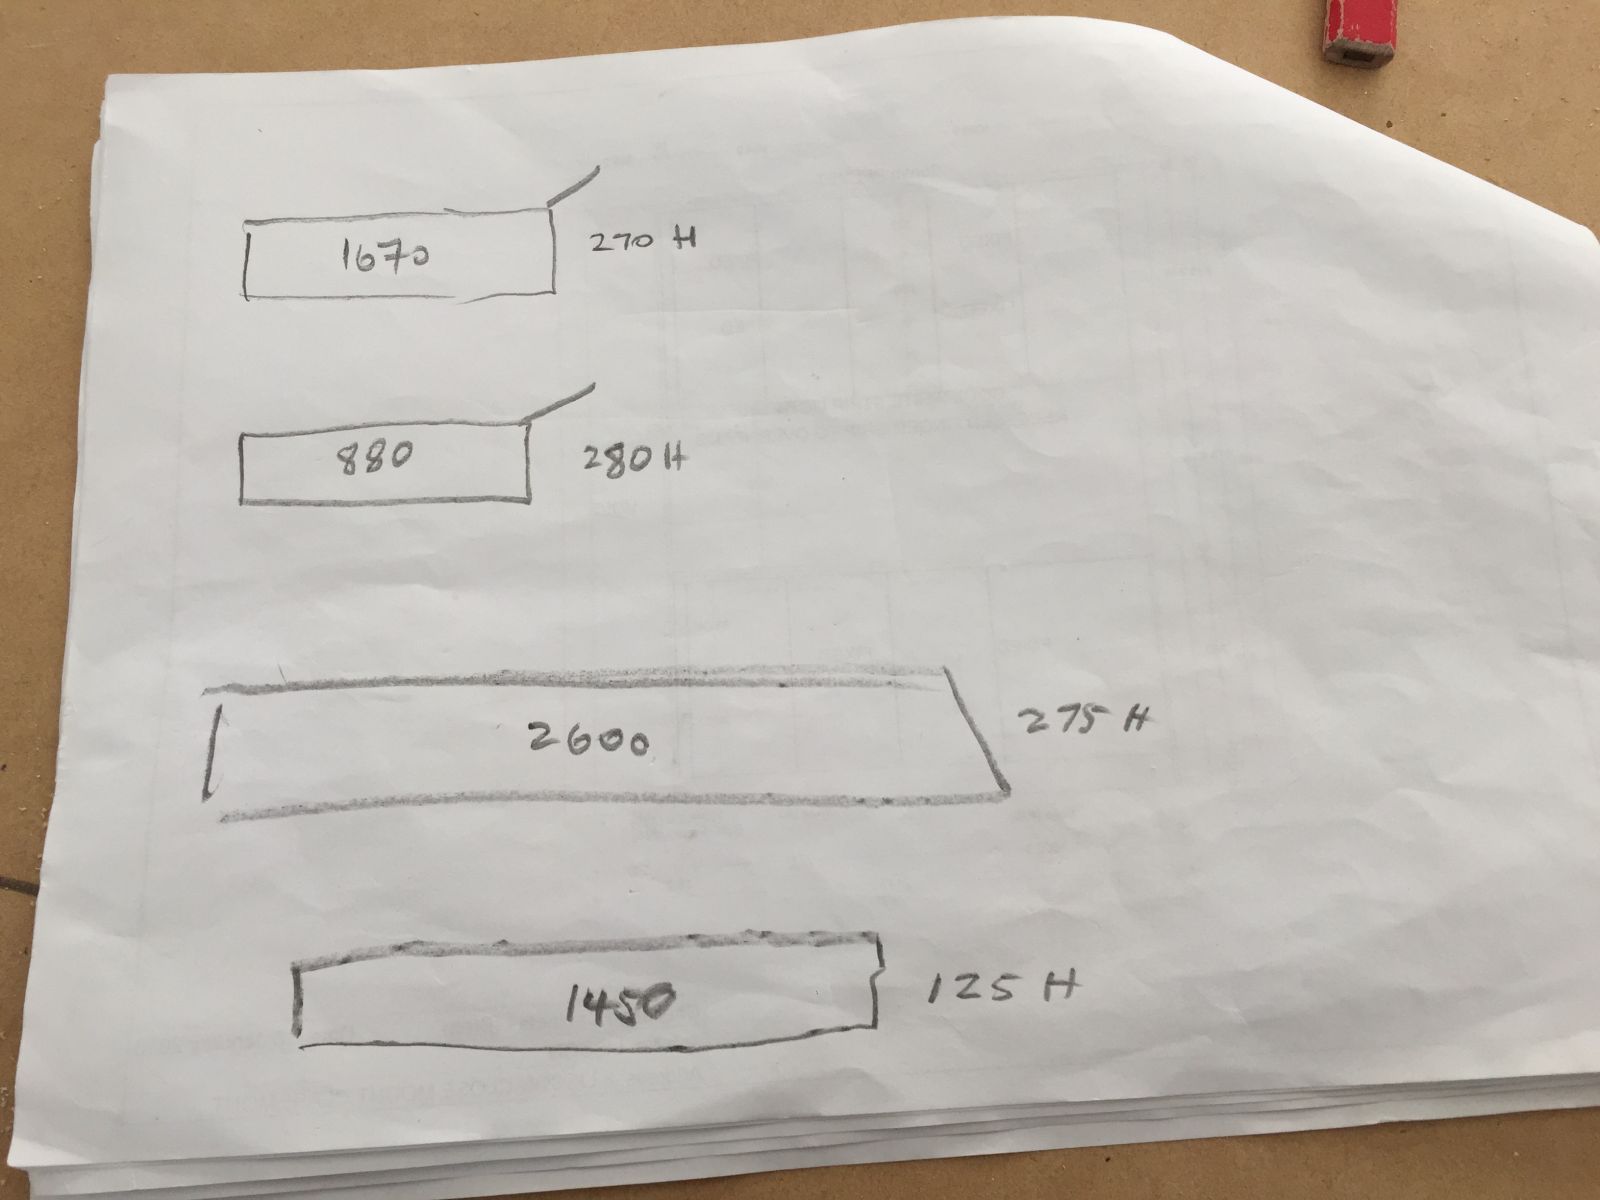 1670 270 H
880 280 H
2600 275 H
1450 125 H